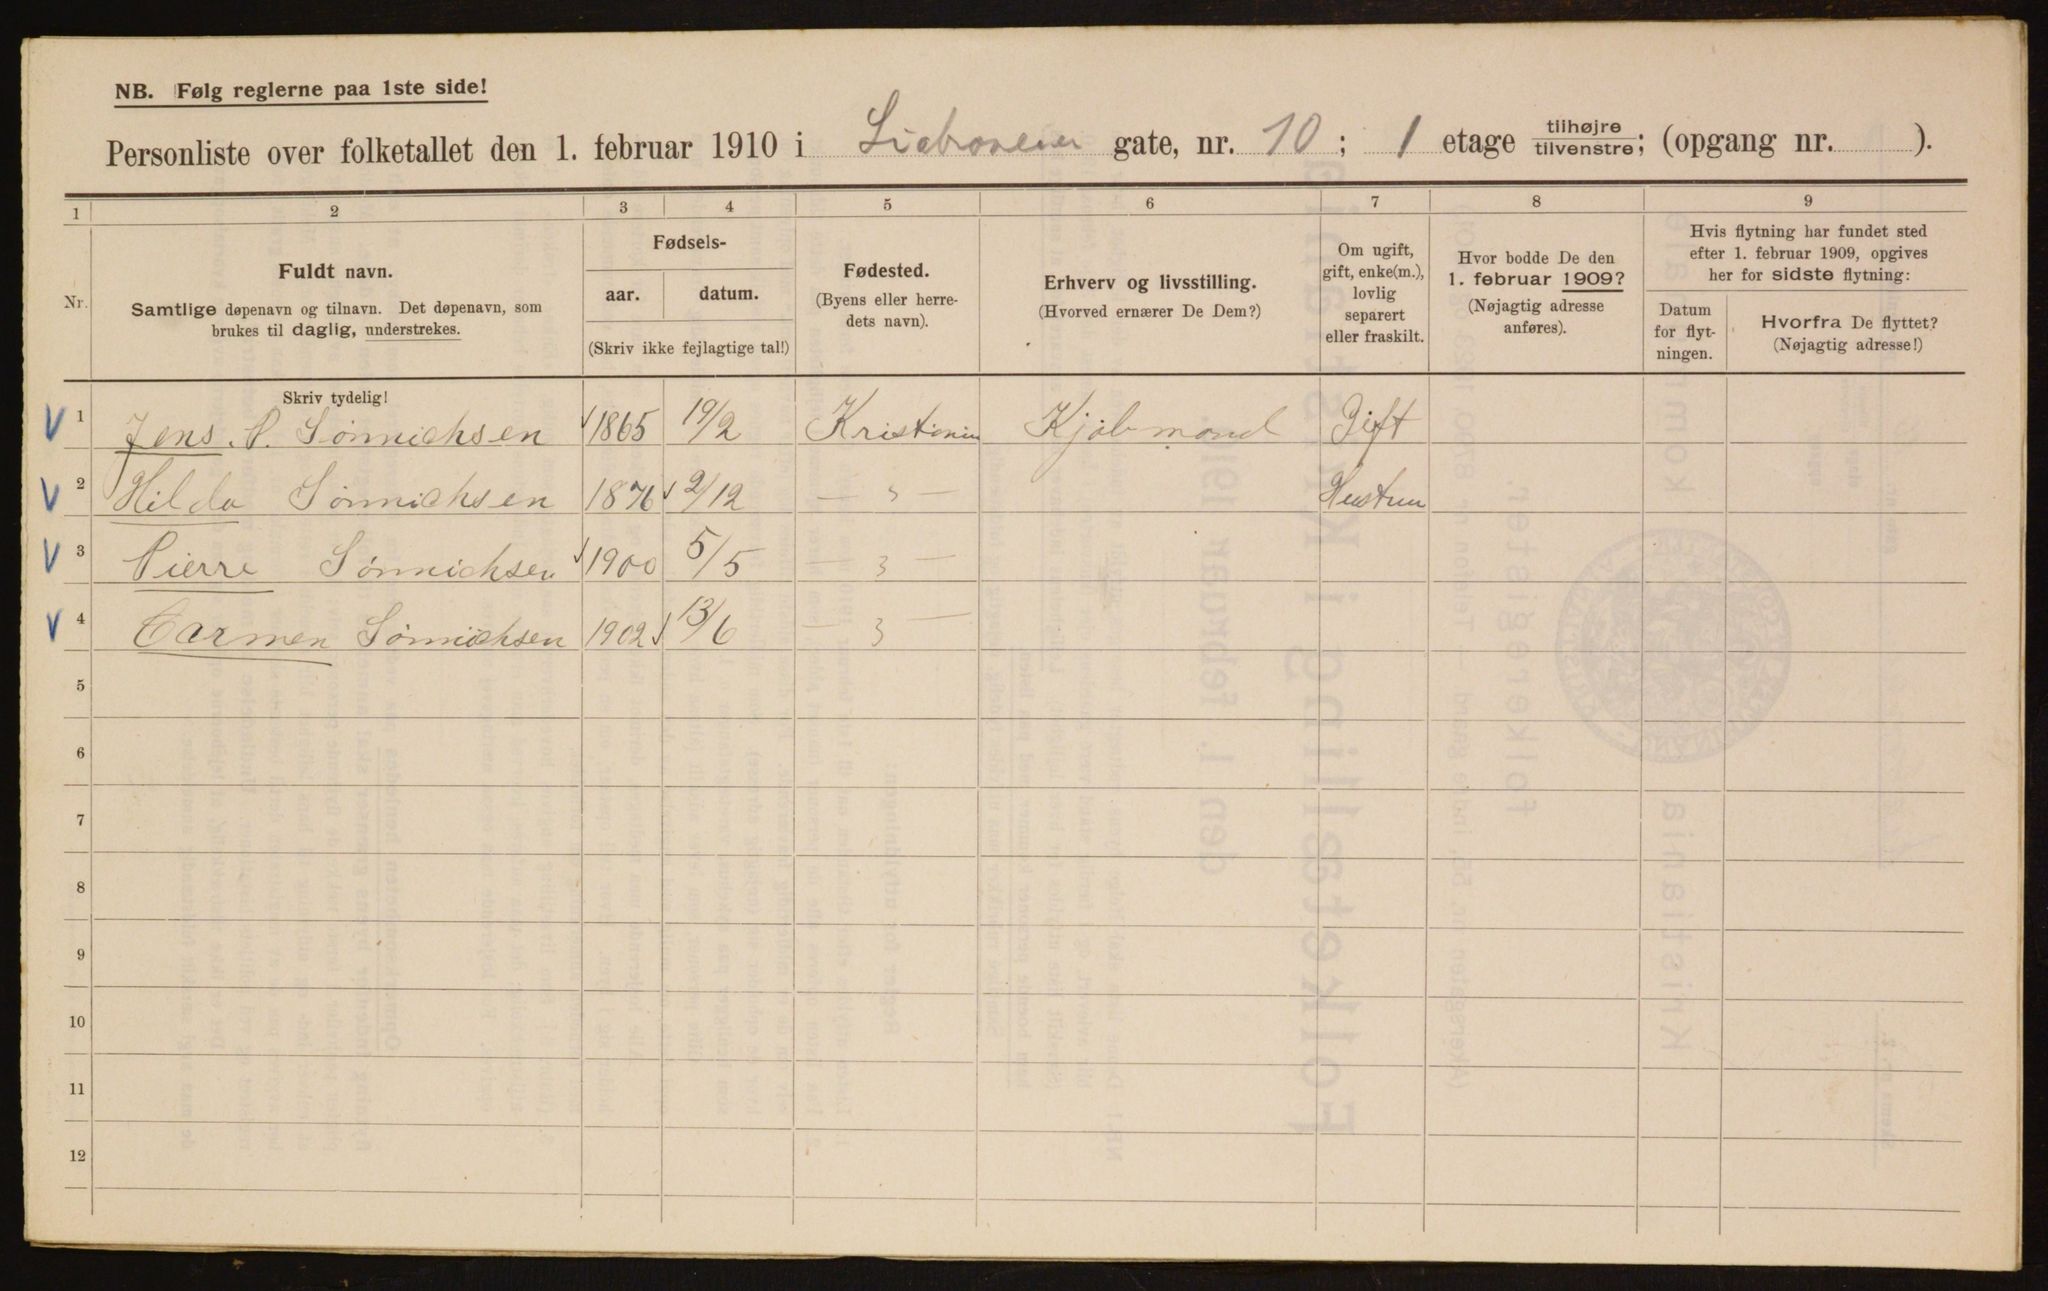 NB. Følg reglerne paa 1ste side!
Personliste over folketallet den 1. februar 1910 i gate, nr. 10; 1 etage tilhøjre tilvenstre; (opgang nr. ).
1 2 3 4 5 6 7 8 9
Nr.
Fuldt navn.
Samtlige døpenavn og tilnavn. Det døpenavn, som
brukes til daglig, understrekes.
Fødsels-
aar. datum.
(Skriv ikke fejlagtige tal!)
Fødested.
(Byens eller herre-
dets navn).
Erhverv og livsstilling.
(Hvorved ernærer De Dem?)
Om ugift,
gift, enke(m.),
lovlig
separert
eller fraskilt.
Hvor bodde De den
1. februar 1909?
(Nøjagtig adresse
anføres).
Hvis flytning har fundet sted
efter 1. februar 1909, opgives
her for sidste flytning:
Datum
for flyt-
ningen.
Hvorfra De flyttet?
(Nøjagtig adresse!)
Skriv tydelig!
1 Jens P. Sönnichsen 1865 19/2 Kristiania Kjöbmand Gift
2 Hilda Sönnichsen 1876 2/12 — " — Hustru
3 Pierre Sönnichsen 1900 5/5 — " —
4 Carmen Sönnichsen 1902 13/6 — " —
5
6
7
8
9
10
11
12